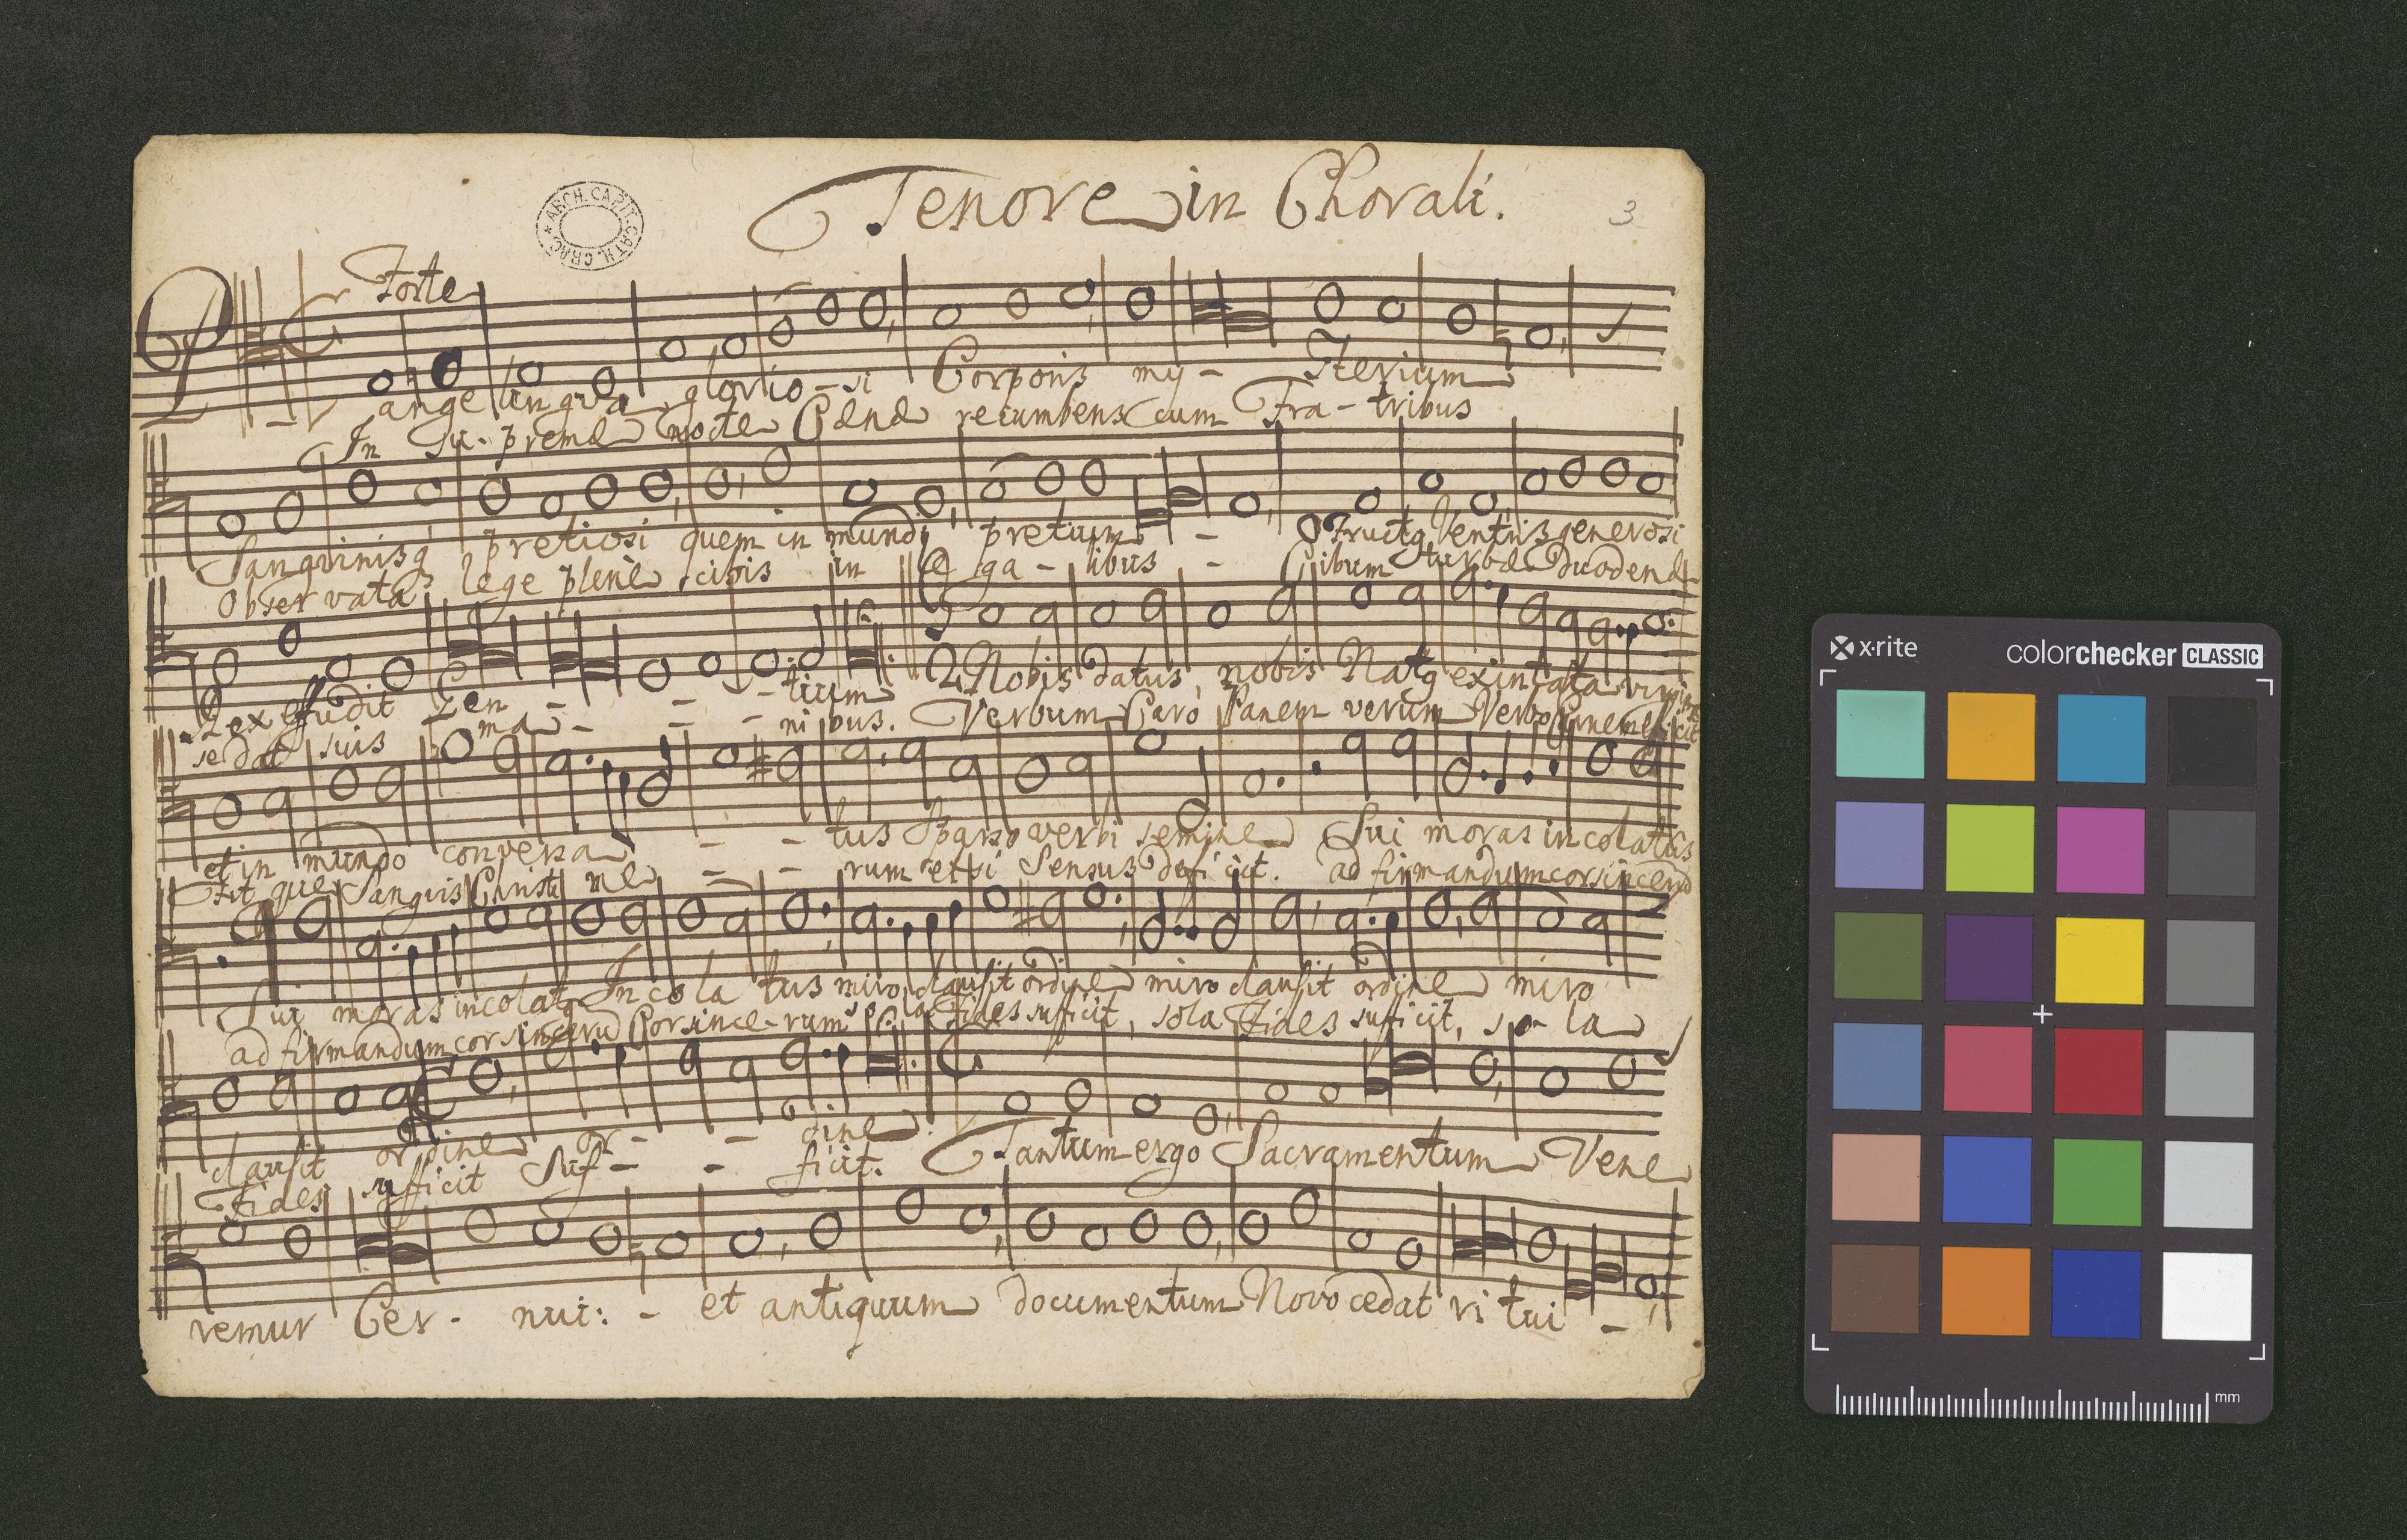 Tenore in Chorali.
3
ARCH. CAPIT. CATH. CRAC.
Forte
Pange lingva glorio - si Corporis my - sterium
In Su - premæ nocte Cænæ recumbens cum Fra - tribus
Sanqvinisq pretiosi quem in mundi pretium - Fructq Ventris generosi
Observata lege plenè cibis in Le ga - libus - Cibum turbæ Duodenæ
Rex effudit Gen - - - tium 2 Nobis datus, nobis Natq ex intacta
se dat suis ma - - - ni bus. Verbum Caro Panem verum Verbo Carnem efficit
et in mundo conversa - - tus Sparso verbi semine Sui moras incolatus
Fit que Sanguis Christi me - - rum et si Sensus defi cit. ad firmandum cor sincerū
Sui moras incolatq Incola tus miro clausit ordine miro clausit ordine miro
ad firmandum cor sincerū Cor since - rum sola Fides sufficit, sola Fides sufficit, so - la
clausit ordine or - - dine. Tantum ergo Sacramentum Vene
Fides sufficit Suf - - ficit.
remur Cer - nui: - et antiquum documentum Novo cedat ri tui -
x·rite
colorchecker CLASSIC
mm